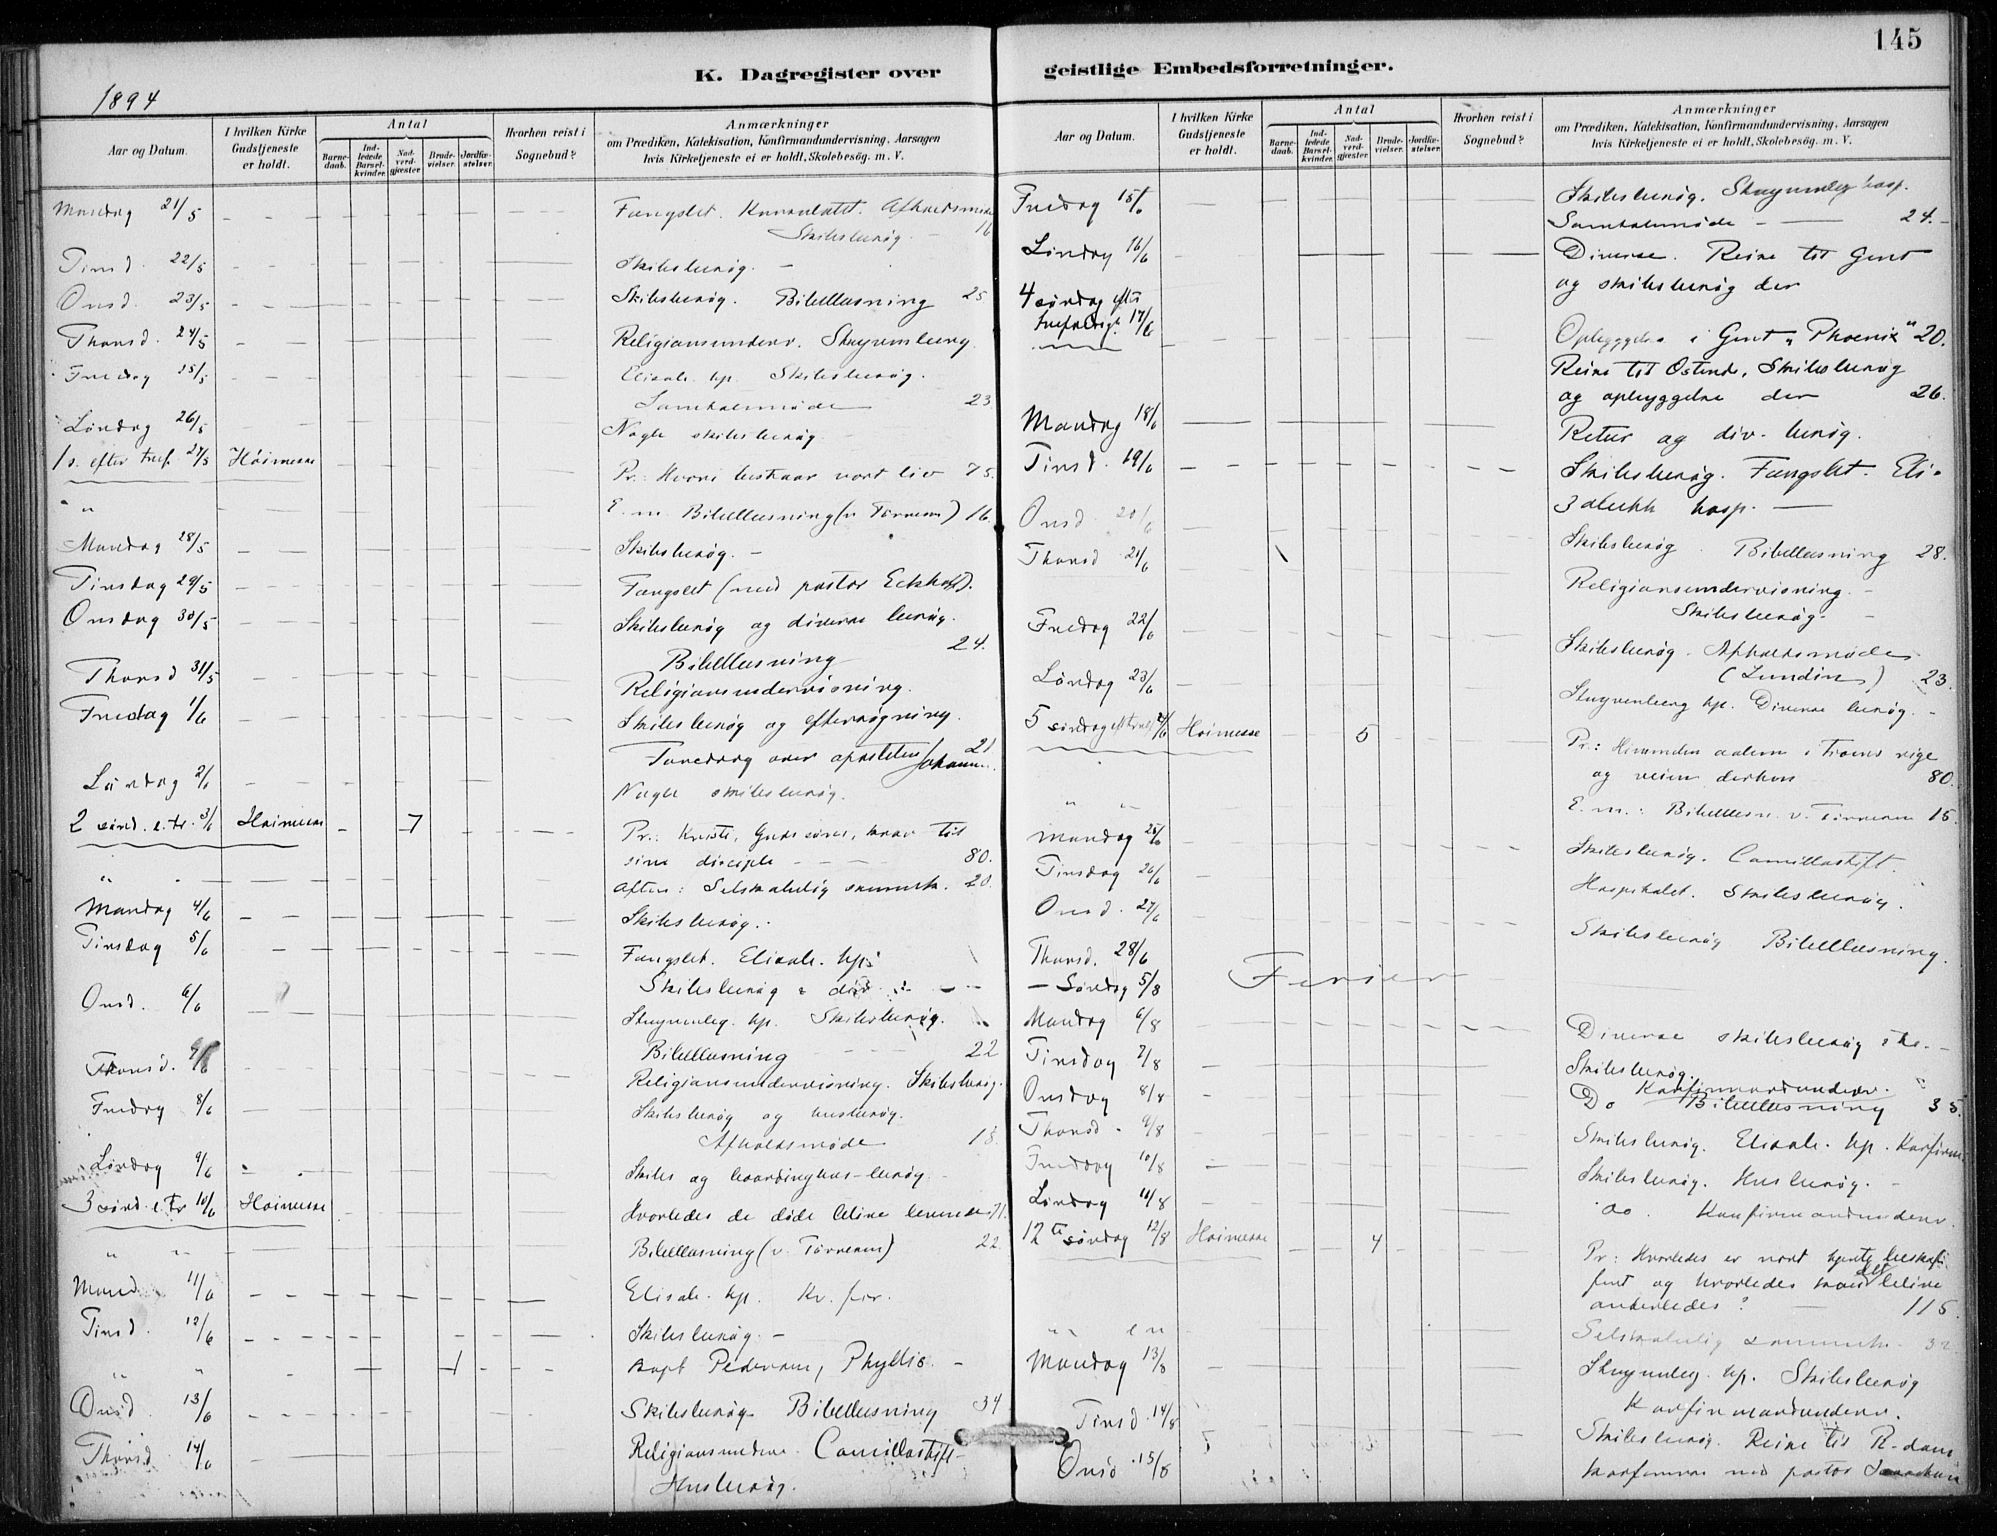 145
K. Dagregister over geistlige Embedsforretninger.
1894
Aar og Datum.
I hvilken Kirke Gudstjeneste er holdt.
Antal
Barnedaab.
Indledede Barselkvinder.
Nadverdgjæster
Brudevielser.
Jordfæstelser.
Hvorhen reist i Sognebud?
Anmærkninger
om Prædiken, Katekisation, Konfirmandundervisning, Aarsagen
hvis Kirketjeneste ei er holdt, Skolebesög. m. V.
Mandag 21/5 Fængslet. Konsulatet. Afholdsmøde
Skibsbesøg. 16
Tirsd. 22/5 Skibsbesøg.
Onsd. 23/5 Skibsbesøg. Bibellæsning 25
Thorsd. 24/5 Religionsunderv. Stuyvenberg.
Fredag 25/5 Elisab. hp. Skibsbesøg.
Samtalemøde 23
Lørdag 26/5 Nogle skibsbesøg
1 s. efter tref. 27/5 Høimesse Pr.: Hvori bestaar vort liv 75.
" E. m. Bibellæsning (v. Tørnesen) 16.
Mandag 28/5 Skibsbesøg.
Tirsdag 29/5 Fængslet (med pastor Eckhoff).
Onsdag 30/5 Skibsbesøg og diverse besøg.
Bibellæsning 24.
Thorsd 31/5 Religionsundervisning.
Fredag 1/6 Skibsbesøg og eftersøgning.
Foredrag over apostelen Johannes. 21
Lørdag 2/6 Nogle skibsbesøg.
2 sønd. e. tr. 3/6 Høimesse 7 Pr.: Kristi, Guds søns, krav til
sine disciple 80.
" Aften: Selskabelig sammenk. 20.
Mandag 4/6 Skibsbesøg.
Tirsdag 5/6 Fængslet. Elisab. hp.
Skibsbesøg
Onsd. 6/6 Stuyvenbg. hp. Skibsbesøg.
Bibellæsning 22
Thorsd. 7/6 Religionsundervisning. Skibsbesøg.
Fredag 8/6 Skibsbesøg og husbesøg.
Afholdsmøde 18
Lørdag 9/6 Skibs og boardinghus-besøg
3 sønd. e. tr 10/6 Høimesse Hvorledes de døde blive levende 71.
" " Bibellæsning (v. Tørnesen) 22.
Mand. 11/6 Elisab. hp. Kv. for.
Tirsd. 12/6 Skibsbesøg.
" " 1 Kapt Pedersen, Phyllis.
Onsd. 13/6 Skibsbesøg. Bibellæsning 34
Thorsd. 14/6 Religionsunderv. Camillastift
Husbesøg.
Aar og Datum.
I hvilken Kirke Gudstjeneste er holdt.
Antal
Barnedaab.
Indledede Barselkvinder.
Nadverdgjæster
Brudevielser.
Jordfæstelser.
Hvorhen reist i Sognebud?
Anmærkninger
om Prædiken, Katekisation, Konfirmandundervisning, Aarsagen
hvis Kirketjeneste ei er holdt, Skolebesög. m. V.
Fredag 15/6 Skibsbesøg. Stuyvenbeg hosp.
Samtalemøde 24.
Lørdag 16/6 Diverse. Reise til Gent
og skibsbesøg der
4 søndag efter
trefoldigh. 17/6 Opbyggelse i Gent "Phoenix" 20.
Reise til Ostende, Skibsbesøg
og opbyggelse der 26.
Mandag 18/6 Retur og div. besøg.
Tirsd. 19/6 Skibsbesøg. Fængslet. Eli-
sabeth hosp.
Onsd. 20/6 Skibsbesøg. Bibellæsning 28.
Thorsd 21/6 Religionsundervisning.
Skibsbesøg.
Fredag 22/6 Skibsbesøg. Afholdsmøde
(Lundin) 23.
Lørdag 23/6 Stuyvenberg hp. Diverse besøg.
5 søndag 24/6 Høimesse 5 Pr.: Himmelen aaben i Troens rige
og veien derhen 80.
" " E. m.: Bibellæsn. v. Tørnesen 15.
Mandag 25/6 Skibsbesøg. Camillastift.
Tirsdag 26/6 Hospitalet. Skibsbesøg.
Onsd. 27/6 Skibsbesøg Bibellæsning.
Thorsd. 28/6
— Søndag 5/8 Ferier
Mandag 6/8 Diverse skibsbesøg etc.
Tirsdag 7/8 Skibsbesøg. Konfirmandunderv.
Onsdag 8/8 Do Bibellæsning 35.
Thorsd. 9/8 Skibsbesøg. Elisab. hp. Konfirm.
Fredag 10/8 Skibsbesøg. Husbesøg.
Lørdag 11/8 do. Konfirmandunderv.
12te søndag 12/8 Høimesse 4 Pr: Hvorledes er vort hjerte beskaf-
fent og hvorledes kan det blive
anderledes? 115.
" " Selskabelig sammenk. 32
Mandag 13/8 Stuyvenbeg. hp. Skibsbesøg
Konfirmandunderv.
Tirsd. 14/8 Skibsbesøg. Reise til R-dam
Onsd. 15/8 med pastor